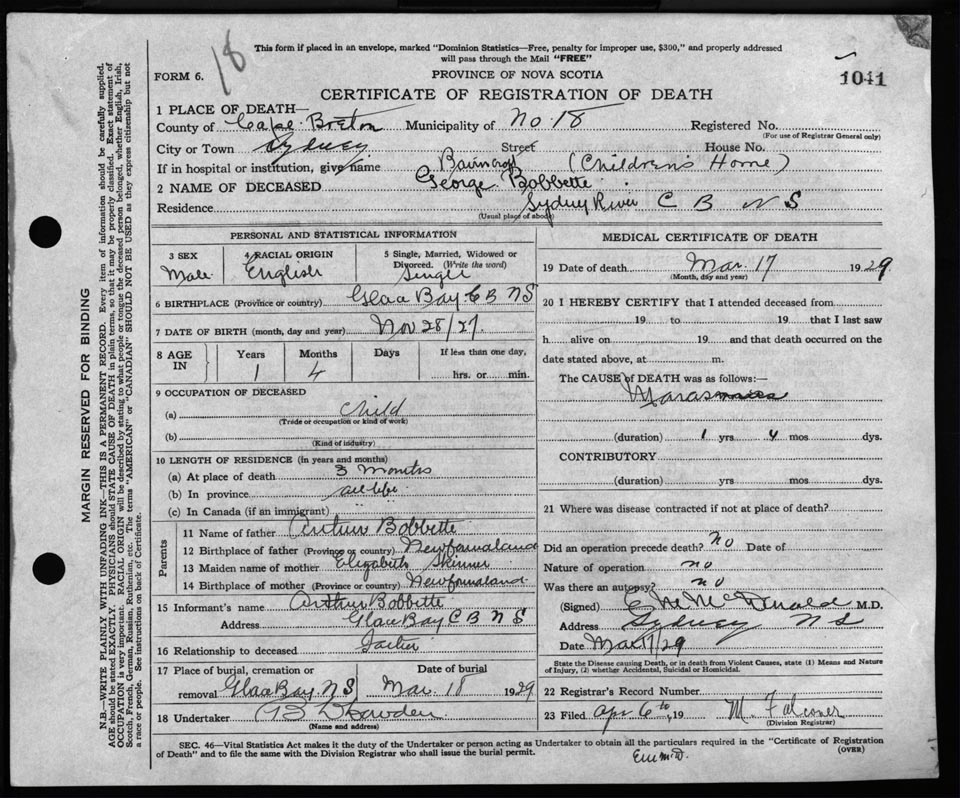 18
This form if placed in an envelope, marked "Dominion Statistics—Free, penalty for improper use, $300," and properly addressed
will pass through the Mail "FREE"
FORM 6.
PROVINCE OF NOVA SCOTIA
1041
CERTIFICATE OF REGISTRATION OF DEATH
1 PLACE OF DEATH—
County of Cape Breton Municipality of No 18 Registered No.
(For use of Registrar General only)
City or Town Sydney Street House No.
If in hospital or institution, give name (Children's Home)
2 NAME OF DECEASED George Bobbette
Residence Sydney River C B N S
(Usual place of abode)
PERSONAL AND STATISTICAL INFORMATION
3 SEX 4 RACIAL ORIGIN 5 Single, Married, Widowed or
Divorced. (Write the word)
Male English Single
6 BIRTHPLACE (Province or country) Glace Bay C B N S
7 DATE OF BIRTH (month, day and year) Nov 28/27.
8 AGE IN Years Months Days If less than one day,
1 4 hrs. or min.
9 OCCUPATION OF DECEASED
(a) child
(Trade or occupation or kind of work)
(b)
(Kind of industry)
10 LENGTH OF RESIDENCE (in years and months)
(a) At place of death 3 months
(b) In province all life
(c) In Canada (if an immigrant)
Parents
11 Name of father Arthur Bobbette
12 Birthplace of father (Province or country) Newfoundland
13 Maiden name of mother Elizabeth Skinner
14 Birthplace of mother (Province or country) Newfoundland
15 Informant's name Arthur Bobbette
Address Glace Bay C B N S
16 Relationship to deceased Father
17 Place of burial, cremation or Date of burial
removal Glace Bay N S Mar. 18 1929
18 Undertaker
(Name and address)
MEDICAL CERTIFICATE OF DEATH
19 Date of death Mar. 17 1929.
(Month, day and year)
20 I HEREBY CERTIFY that I attended deceased from
19 to 19 that I last saw
h alive on 19 and that death occurred on the
date stated above, at m.
The CAUSE of DEATH was as follows:—
Marasmus
(duration) 1 yrs 4 mos dys.
CONTRIBUTORY
(duration) yrs. mos. dys.
21 Where was disease contracted if not at place of death?
Did an operation precede death? no Date of
Nature of operation no
Was there an autopsy? no
(Signed) McDonald M.D.
Address Sydney N S
Date Mar 17/29
State the Disease causing Death, or in death from Violent Causes, state (1) Means and Nature
of Injury, (2) whether Accidental, Suicidal or Homicidal.
22 Registrar's Record Number
23 Filed Apr 6th, 19 M. Falconer
(Division Registrar)
SEC. 46—Vital Statistics Act makes it the duty of the Undertaker or person acting as Undertaker to obtain all the particulars required in the "Certificate of Registration
of Death" and to file the same with the Division Registrar who shall issue the burial permit.
(OVER)
MARGIN RESERVED FOR BINDING
N.B.—WRITE PLAINLY WITH UNFADING INK—THIS IS A PERMANENT RECORD. Every item of information should be carefully supplied.
AGE should be stated EXACTLY. PHYSICIANS should STATE CAUSE OF DEATH in plain terms, so that it may be properly classified. Exact statement of
OCCUPATION is very important. RACIAL ORIGIN will be described by stating to what people or tongue the deceased person belonged, whether English, Irish,
Scotch, French, German, Russian, Ruthenian, etc. The terms "AMERICAN" or "CANADIAN" SHOULD NOT BE USED as they express citizenship but not
a race or people. See instructions on back of Certificate.